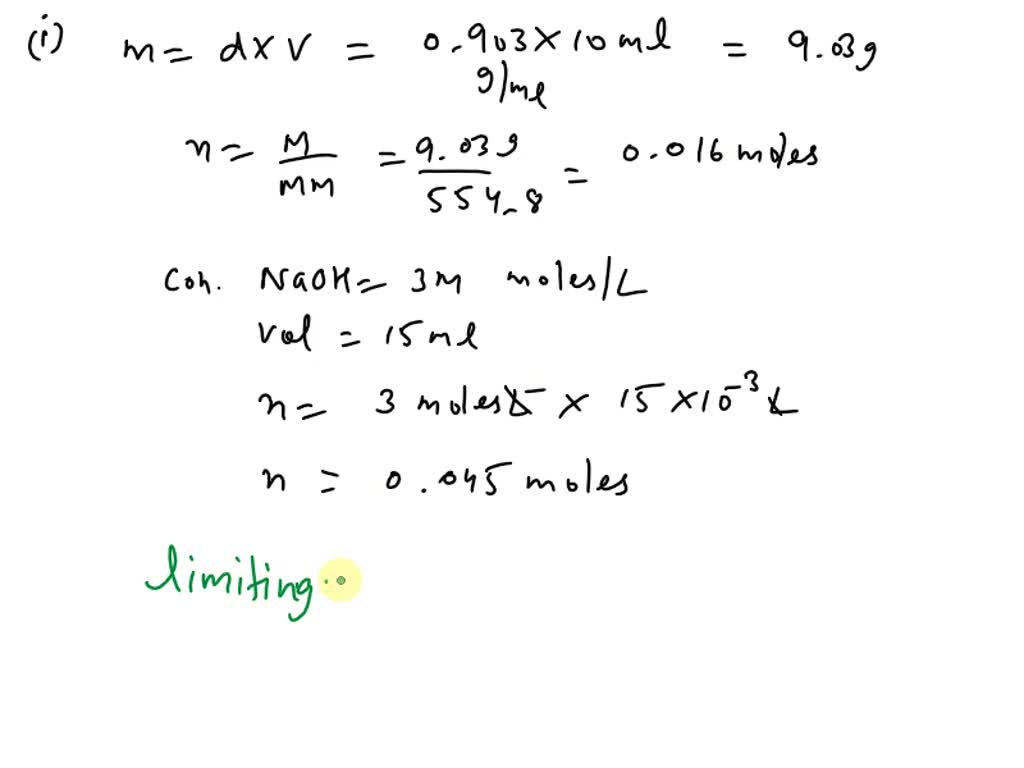 (i) m = d x v = 0.903 x 10 ml = 9.03g
g/ml
n = M/MM = 9.03g/554.8 = 0.016 moles
Con. NaOH = 3M moles/L
Vol = 15 ml
n = 3 moles L⁻ x 15 x 10⁻³ L
n = 0.045 moles
limiting